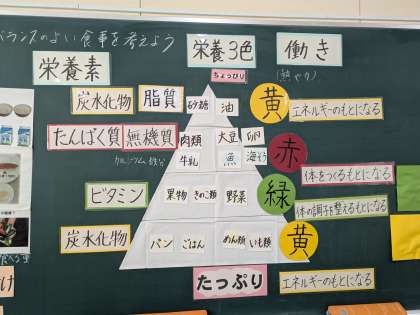 バランスのよい食事を考えよう
栄養3色
働き
栄養素
(熱や力)
ちょっぴり
炭水化物
脂質
砂糖
油
黄
エネルギーのもとになる
たんぱく質
無機質
肉類
大豆
卵
赤
カルシウム
牛乳
魚
海そう
体をつくるもとになる
ビタミン
果物
きのこ類
野菜
緑
体の調子を整えるもとになる
炭水化物
パン
ごはん
めん類
いも類
黄
たっぷり
エネルギーのもとになる